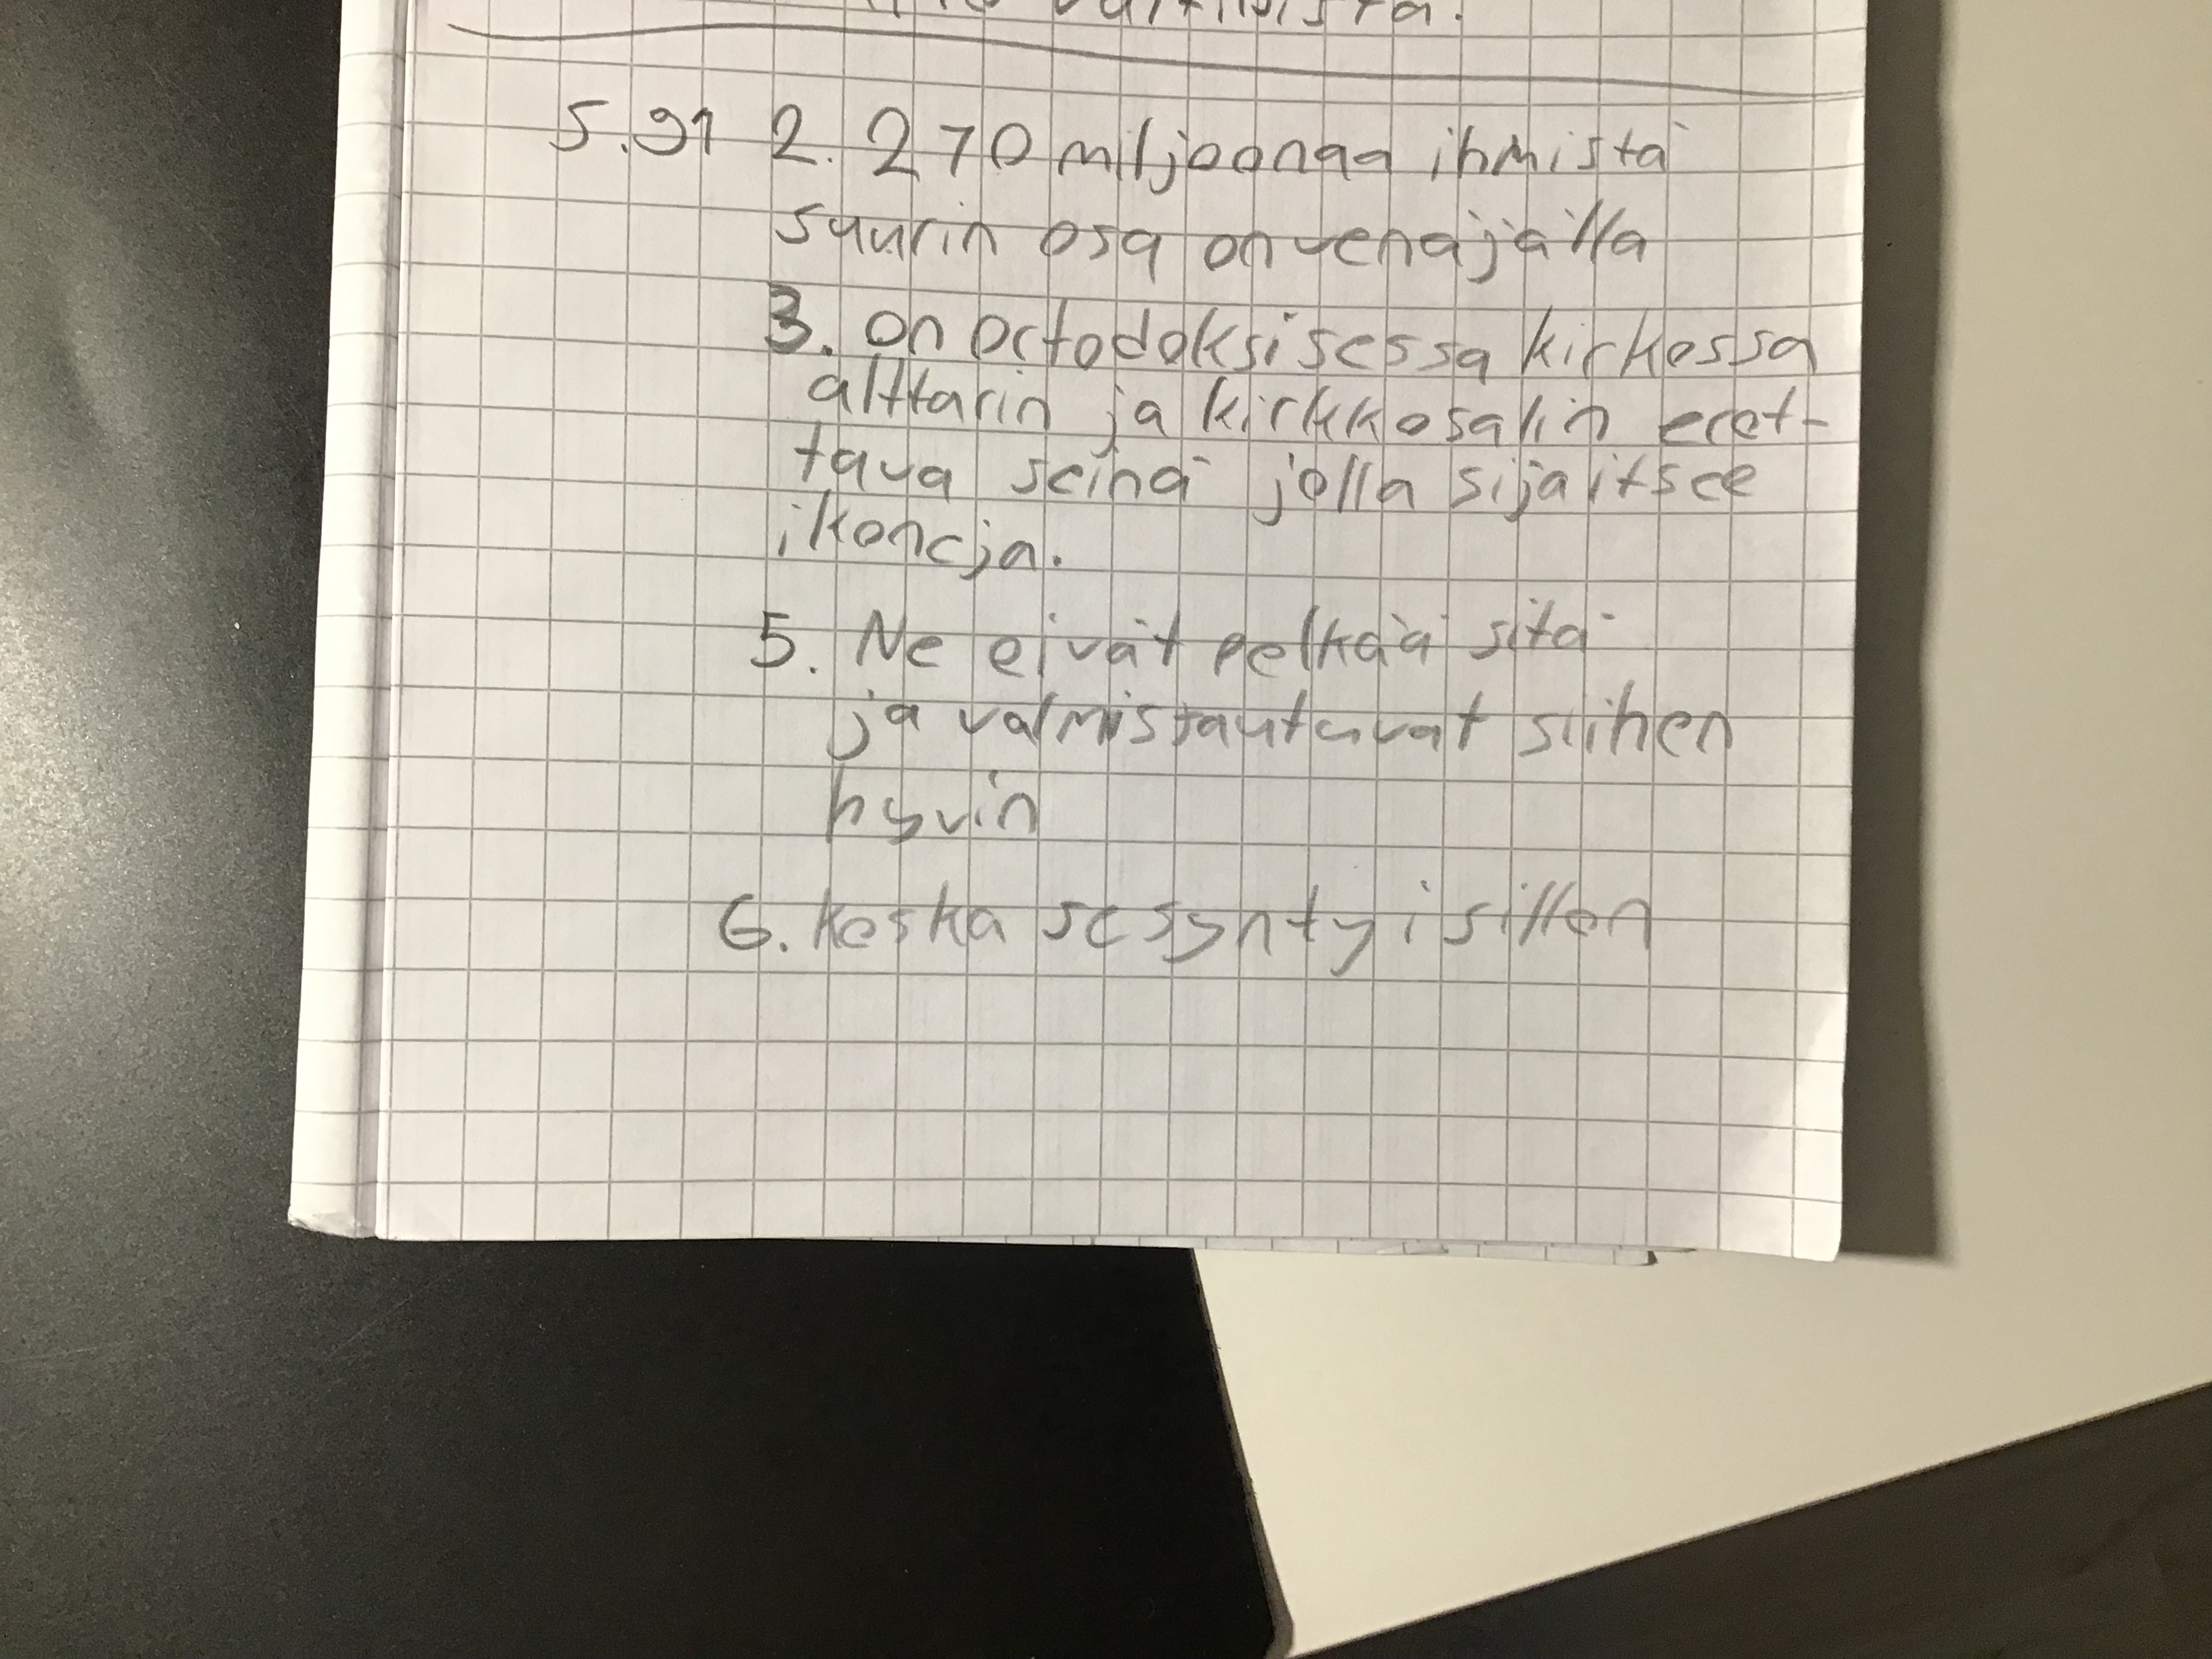 s.91 2. 270 miljoonaa ihmistä
suurin osa on venäjällä
3. on ortodoksisessa kirkossa
alttarin ja kirkkosalin erot-
tava seinä jolla sijaitsee
ikoneja.
5. Ne eivät pelkää sitä
ja valmistautuvat siihen
hyvin
6. koska se syntyi sillon